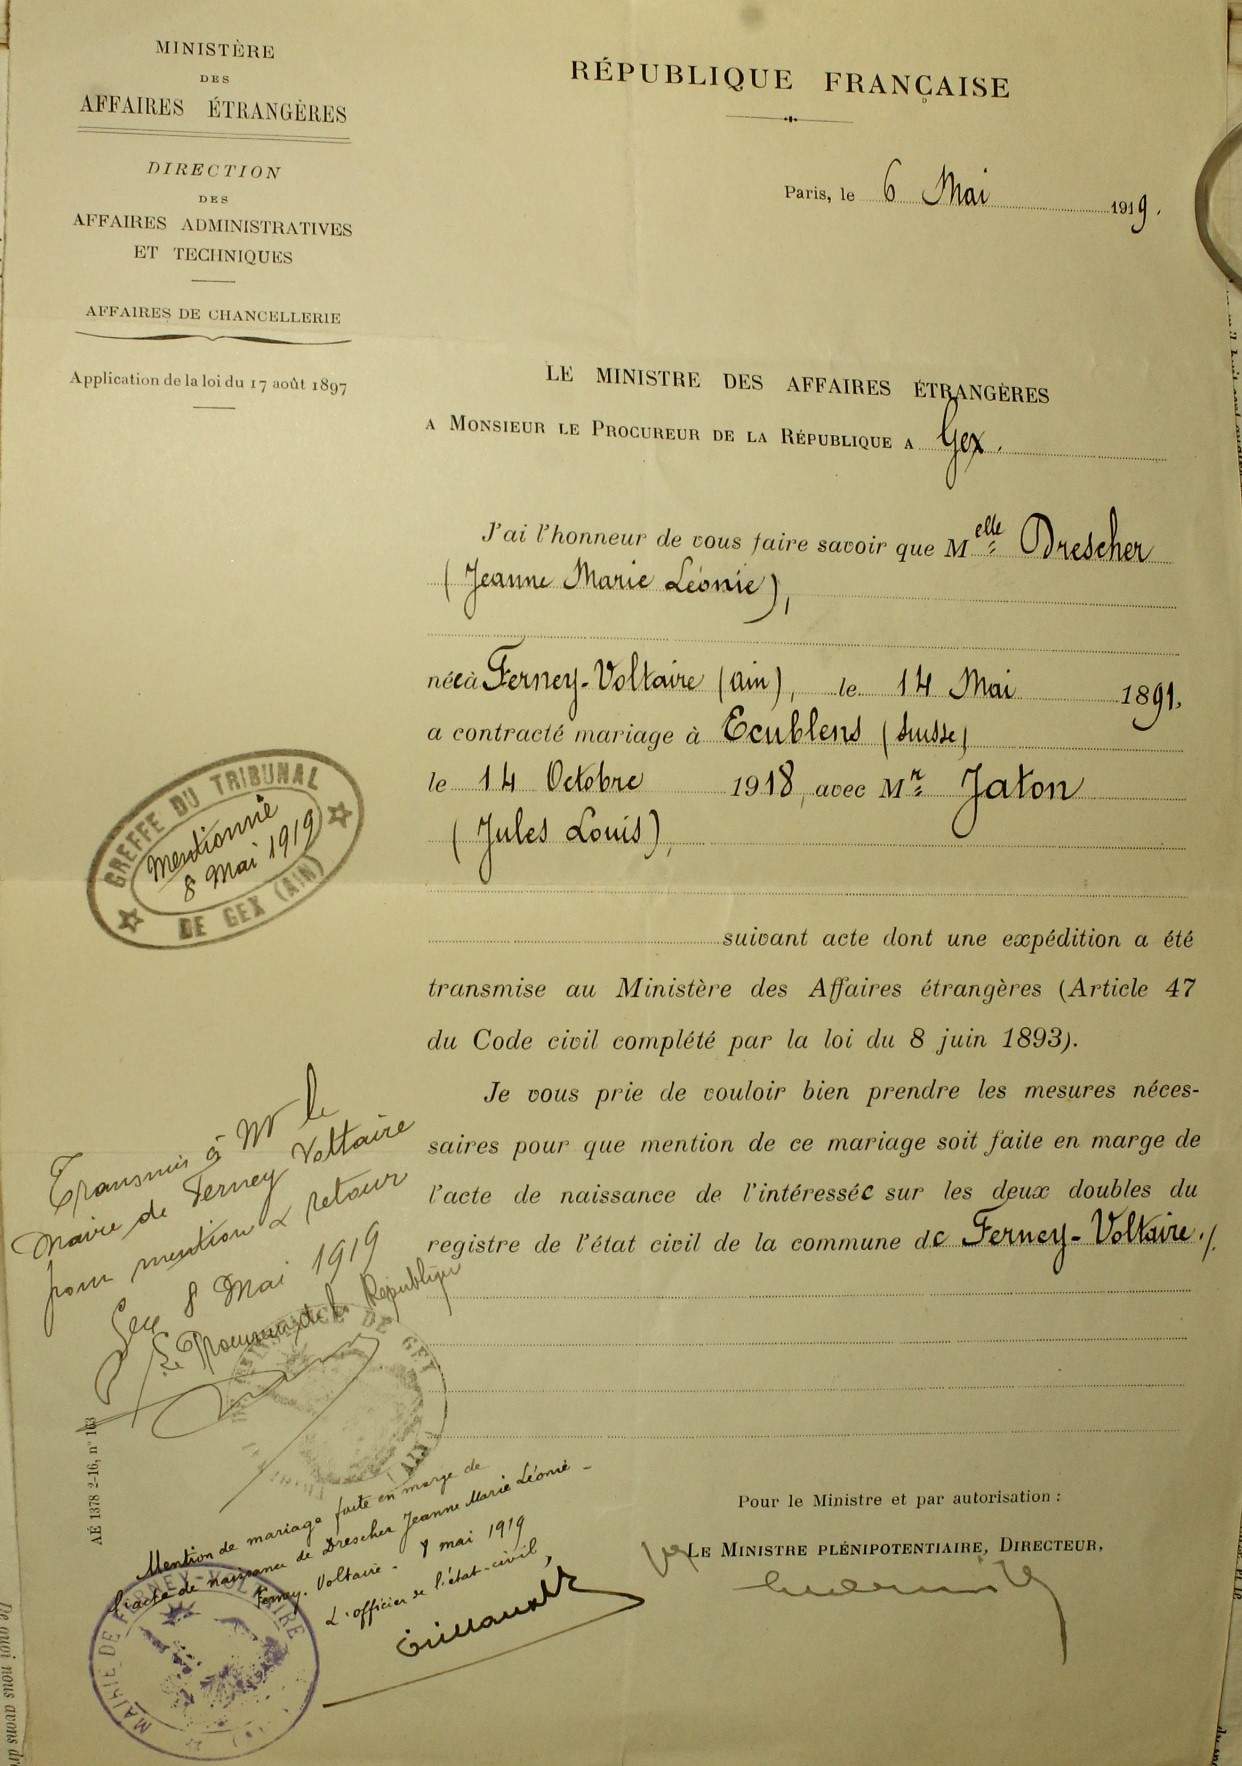 MINISTÈRE
DES
AFFAIRES ÉTRANGÈRES
DIRECTION
DES
AFFAIRES ADMINISTRATIVES
ET TECHNIQUES
AFFAIRES DE CHANCELLERIE
Application de la loi du 17 août 1897
RÉPUBLIQUE FRANÇAISE
Paris, le 6 Mai 1919.
LE MINISTRE DES AFFAIRES ÉTRANGÈRES
A MONSIEUR LE PROCUREUR DE LA RÉPUBLIQUE A Gex.
J'ai l'honneur de vous faire savoir que Melle Drescher
(Jeanne Marie Léonie),
née à Ferney-Voltaire (Ain), le 14 Mai 1891,
a contracté mariage à Ecublens (Suisse)
le 14 Octobre 1918, avec Mr Jaton
(Jules Louis),
suivant acte dont une expédition a été
transmise au Ministère des Affaires étrangères (Article 47
du Code civil complété par la loi du 8 juin 1893).
Je vous prie de vouloir bien prendre les mesures néces-
saires pour que mention de ce mariage soit faite en marge de
l'acte de naissance de l'intéressée sur les deux doubles du
registre de l'état civil de la commune de Ferney-Voltaire./.
Pour le Ministre et par autorisation :
LE MINISTRE PLÉNIPOTENTIAIRE, DIRECTEUR,
GREFFE DU TRIBUNAL
Mentionné
8 Mai 1919
DE GEX (AIN)
Transmis à Mr le
Maire de Ferney Voltaire
pour mention & retour
Gex 8 Mai 1919
Le Procureur de la République
DE GEX
(AIN)
AÉ 1378 2-16, n° 163
Mention de mariage faite en marge de
l'acte de naissance de Drescher Jeanne Marie Léonie -
Ferney-Voltaire - 9 mai 1919
L'officier de l'état-civil,
MAIRIE DE FERNEY-VOLTAIRE
De quoi nous avons